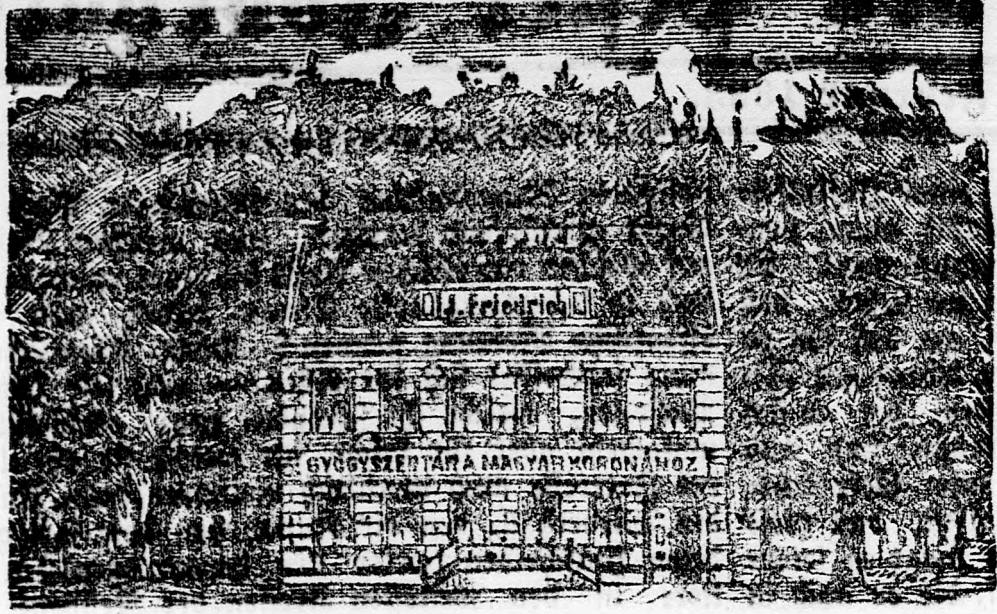 J. Friedrich
GYÓGYSZERTÁR A MAGYAR KORONÁHOZ